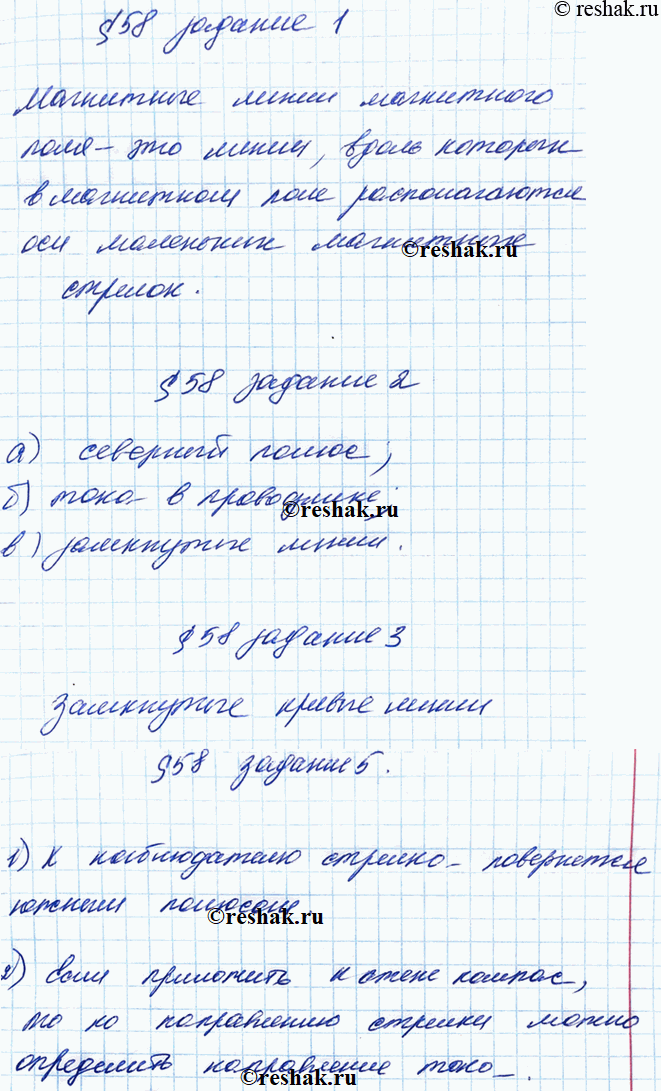 © reshak.ru
§58 задание 1
Магнитные линии магнитного
поля – это линии, вдоль которых
в магнитном поле располагаются
оси маленьких магнитных
© reshak.ru
стрелок.
§58 задание 2
а) северный полюс;
б) тока в проводнике;
© reshak.ru
в) замкнутые линии.
§58 задание 3
Замкнутые кривые линии
§58 задание 5.
1) К наблюдателю стрелка повернется
южным полюсом
© reshak.ru
2) Если приложить к стене компас,
то по направлению стрелки можно
определить направление тока.
© reshak.ru